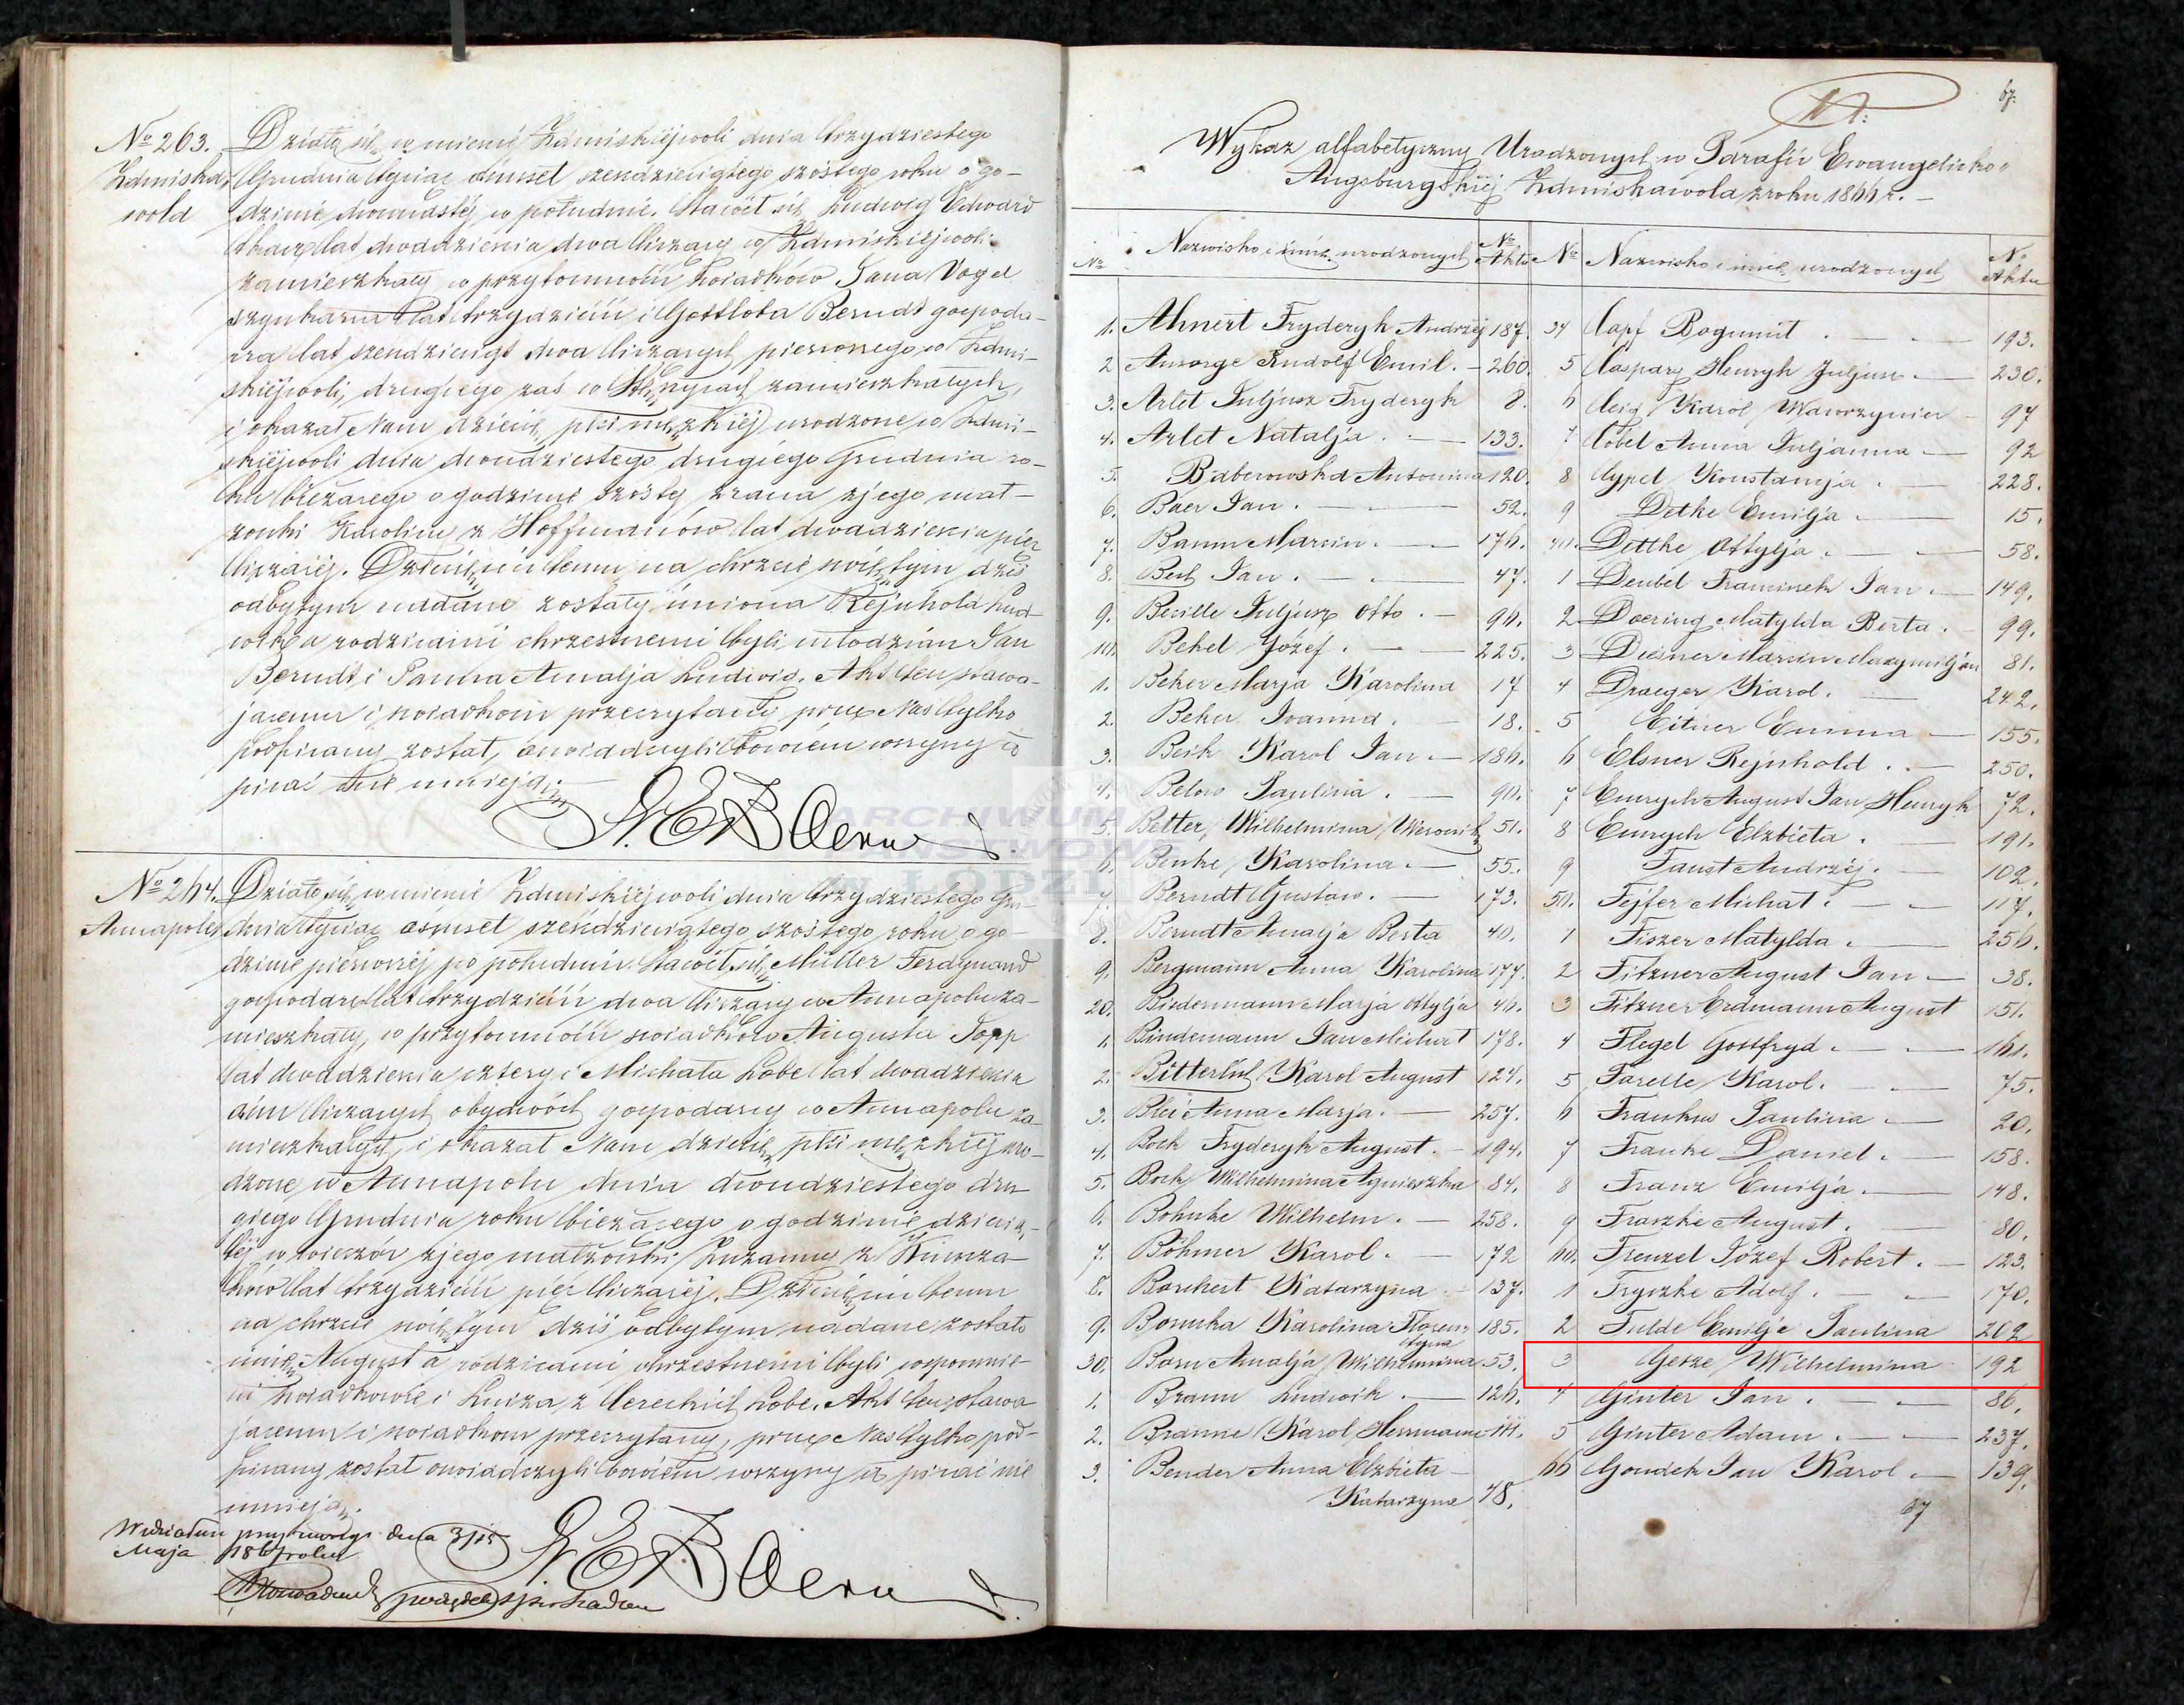 No 263.
Zduńska
wola
Działo się w mieście Zduńskiejwoli dnia trzydziestego
Grudnia tysiąc ośmset szesdziesiątego szóstego roku o go-
dzinie dwunastej w południe. Stawił się Ludwig Edward
tkacz lat dwadzieścia dwa liczący w Zduńskiejwoli
zamieszkały w przytomności świadków Jana Vogel
szynkarza lat trzydzieści i Gottloba Berndt gospoda-
rza lat szesdziesiąt dwa liczących pierwszego w Zduń-
skiejwoli, drugiego zaś w zamieszkałych,
i okazał Nam dziecię płci męzkiej urodzone w Zduń-
skiejwoli dnia dwudziestego drugiego Grudnia ro-
ku bieżącego o godzinie szóstej zrana z jego mał-
żonki Karoliny z Hoffmanów lat dwadzieścia pięć
liczącej. Dziecięciu temu na chrzcie świętym dziś
odbytym nadane zostały imiona Rejnhold Lud-
wik a rodzicami chrzestnemi byli młodzian Jan
Berndt i Panna Amalja Ludwig. Akt ten stawa-
jącemu i świadkom przeczytany przez Nas tylko
podpisany został, oświadczyli bowiem wszyscy iż
pisać nie umieją.
No 264.
Annapole
Działo się w mieście Zduńskiejwoli dnia trzydziestego Gru-
dnia tysiąc ośmset szesdziesiątego szóstego roku o go-
dzinie pierwszej po południu. Stawił się Müller Ferdynand
gospodarz lat trzydzieści dwa liczący w Annapolu za-
mieszkały, w przytomności świadków Augusta Topp
lat dwadzieścia cztery i Michała Lobe lat dwadzieścia
liczących obydwóch gospodarzy w Annapolu za-
mieszkałych, i okazał Nam dziecię płci męzkiej uro-
dzone w Annapolu dnia dwudziestego dru-
giego Grudnia roku bieżącego o godzinie dziewią-
tej w wieczór z jego małżonki Zuzanny z
lat trzydzieści pięć liczącej. Dziecięciu temu
na chrzcie świętym dziś odbytym nadane zostało
imię August a rodzicami chrzestnemi byli wspomnie-
ni świadkowie i Luiza z Lobe. Akt ten stawa-
jącemu i świadkom przeczytany, przez Nas tylko pod-
pisany został oświadczyli bowiem wszyscy iż pisać nie
umieją.
dnia 3/15
Maja 1867 roku
67.
Wykaz alfabetyczny Urodzonych w Parafii Ewangelicko
Augsburgskiej Zduńskawola z roku 1866 r.
No Nazwisko i imię urodzonych No Aktu No Nazwisko i imię urodzonych No Aktu
1. Ahnert Fryderyk Andrzej 187.
2 Ansorge Rudolf Emil. 260.
3. Arlet Juljusz Fryderyk 8.
4. Arlet Natalja. 133.
5. Baberowska Antonina 120.
6. Baer Jan. 52.
7. Baum Marcin. 176.
8. Bech Jan. 47.
9. Juljusz Otto. 96.
10. Bekel Józef. 225.
1. Beker Marja Karolina 17
2. Beker Joanna. 18.
3. Karol Jan 186.
4. Below Paulina. 90.
5. Better, Wilhelmina 51.
6. Benke Karolina. 55.
7. Berndt Gustaw. 173.
8. Berndt Amalja Berta 40.
9. Bergmann Anna Karolina 177.
20. Biedermann Marja Ottylja 46.
1. Bindemann Jan Michał 178.
2. Karol August 124.
3. Anna Marja. 257.
4. Bock Fryderyk August. 194.
5. Bock Wilhelmina Agnieszka 84.
6. Bohnke Wilhelm. 258.
7. Böhmer Karol. 172
8. Borchert Katarzyna 137.
9. Karolina Floren-
tyna 185.
30. Born Amalja Wilhelmina 53.
1. Braun Ludwik. 126.
2. Braune Karol Hermann 141.
3. Bender Anna Elżbieta
Katarzyna 78.
34 Capf Bogumił. 193.
5 Caspary Henryk Juljusz 230.
6 Karol Wawrzyniec 97
7 Cobel Anna Juljanna 92
8 Cypel Konstancja. 228.
9 Detke Emilja. 15.
40. Dettke Ottylja. 58.
1 Deubel Franciszek Jan. 149.
2 Doering Matylda Berta. 99.
3 Marcin Maxymiljan 81.
4 Draeger Karol. 242.
5 Eitner Emma 155.
6 Elsner Rejnhold. 250.
7 Emrych August Jan Henryk 72.
8 Emrych Elżbieta. 191.
9 Faust Andrzej. 102.
50. Fejfer Michał. 117.
1 Fiszer Matylda. 256.
2 Fitzner August Jan 38.
3 Fitzner Erdmann August 151.
4 Flegel Gottfryd. 161.
5 Karol. 75.
6 Frankus Paulina 20.
7 Franke Daniel. 158.
8 Franz Emilja. 148.
9 Fraszke August. 80.
60. Frenzel Józef Robert. 123.
1 Fryszke Adolf. 170.
2 Fulde Emilja Paulina 202
3 Gesze Wilhelmina 192
4 Ginter Jan. 86.
5 Ginter Adam. 237.
66 Goudek Jan Karol. 139.
67
ARCHIWUM
PAŃSTWOWE
W ŁODZI